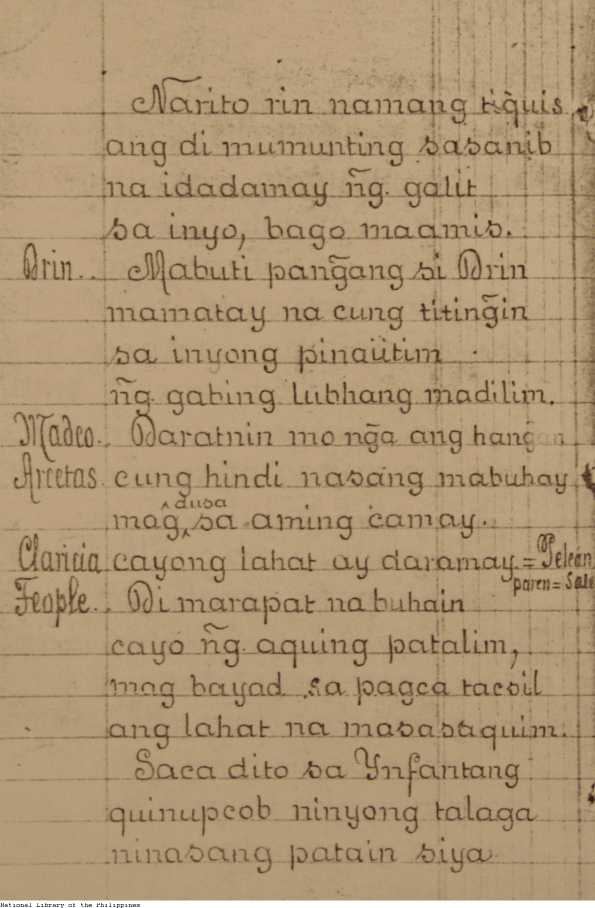 Narito rin namang tiq̃uis
ang di mumunting sasanib
na idadamay ñg. galit
sa inyo, bago maamis.
Drin.. Mabuti pang̃ang si Drin
mamatay na cung titing̃in
sa inyong pinaütim
ñg. gabing lubhang madilim.
Madeo.. Daratnin mo ng̃a ang hang̃an
Arcetas cung hindi nasang mabuhay
mag dusa sa aming camay.
Claricia cayong lahat ay daramay = Pelean
paren = Sale
Feople.. Di marapat na buhain
cayo ñg. aquing patalim,
mag bayad sa pagca tacsil
ang lahat na masasaquim.
Saca dito sa Ynfantang
quinupcob ninyong talaga
ninasang patain siya
National Library of the Philippines